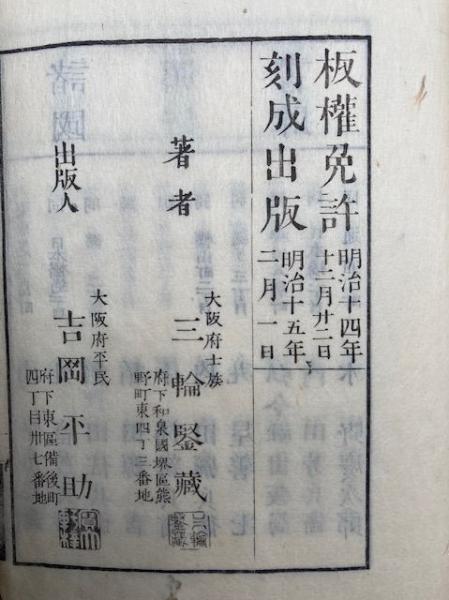 板權免許
明治十四年
十二月廿二日
刻成出版
明治十五年
二月一日
著者
大阪府士族
三輪鑒藏
府下和泉國堺區熊
野町東四丁三番地
出版人
大阪府平民
吉岡平助
府下東區備後町
四丁目卅七番地